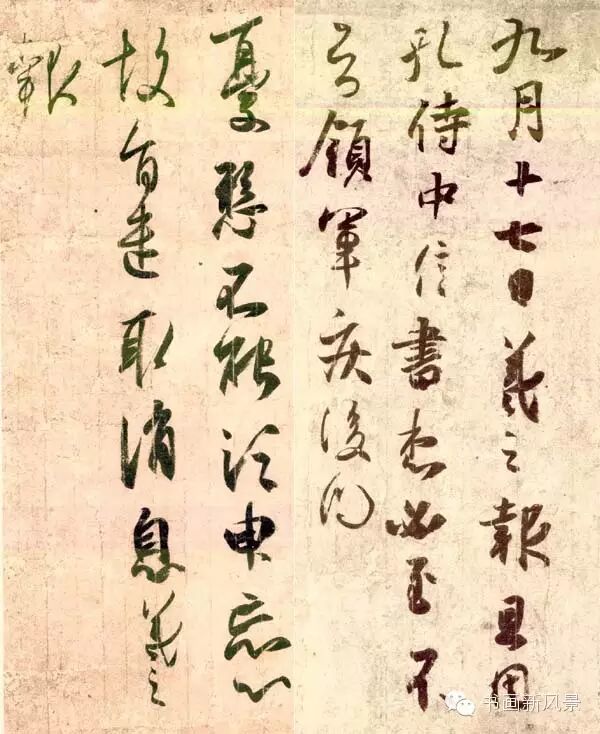 九月十七日羲之報且因
孔侍中信書想必至不
知領軍疾後問
憂懸不能須臾忘心
故旨遣取消息羲之
報
书画新风景